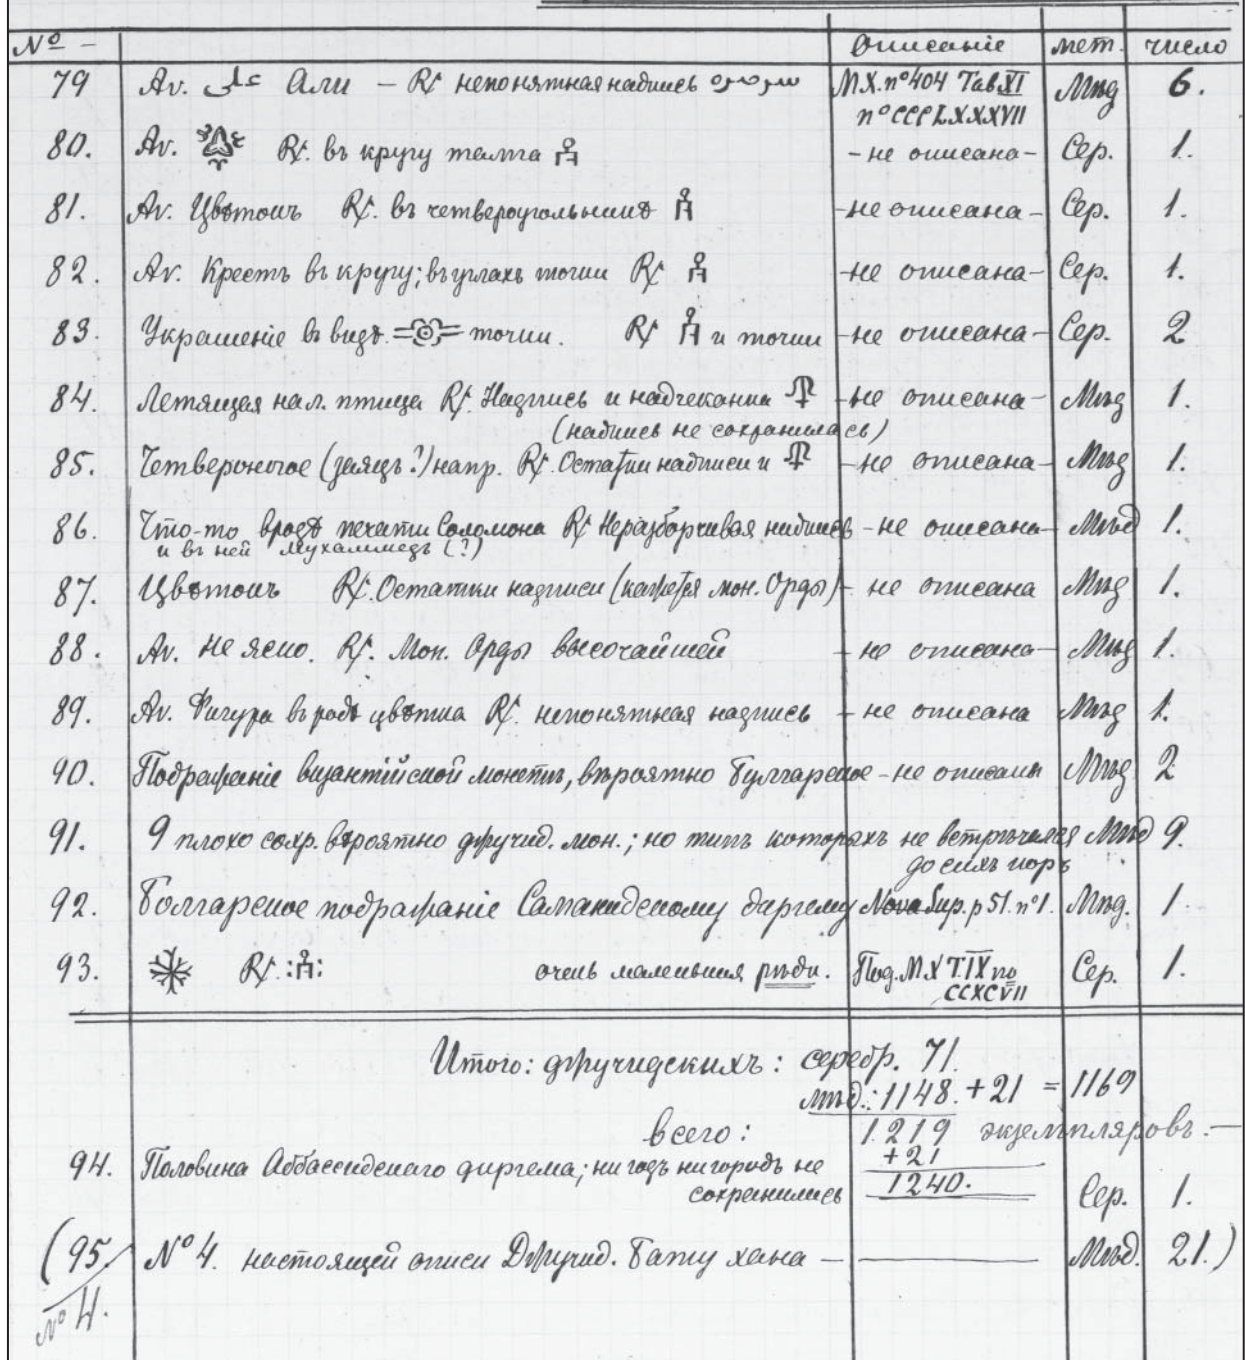 № – Описаніе мет. число
79 Av. على Али – R/ непонятная надпись М.Х. nº404 Таб XI Мѣд 6.
nº CCCLXXXVII
80. Av. R/. въ кругу тамга – не описана – Сер. 1.
81. Av. Цвѣтокъ R/. въ четвероугольникѣ – не описана – Сер. 1.
82. Av. Крестъ въ кругу; въ углахъ точки R/ – не описана – Сер. 1.
83. Украшеніе въ видѣ точки. R/ и точки – не описана – Сер. 2
84. Летящая нал. птица R/. Надпись и надчеканка – не описана – Мѣд 1.
(надпись не сохранилась)
85. Четвероногое (заяцъ?) напр. R/. Остатки надписи и – не описана – Мѣд 1.
86. Что-то вродѣ печати Соломона R/ Неразборчивая надпись – не описана – Мѣд 1.
и въ ней Мухаммедъ (?)
87. Цвѣтокъ R/. Остатки надписи (кажется мон. Орды) – не описана Мѣд 1.
88. Av. Не ясно. R/. Мон. Орды высочайшей – не описана – Мѣд 1.
89. Av. Фигура въ родѣ цвѣтка R/. непонятная надпись – не описана Мѣд 1.
90. Подражаніе византійской монетѣ, вѣроятно Булгарское – не описаны Мѣд 2
91. 9 плохо сохр. вѣроятно джучид. мон.; но типъ которыхъ не встрѣчался Мѣд 9.
до сихъ поръ
92. Болгарское подражаніе Саманидскому диргему Nova Sup. p 51. nº1. Мѣд. 1.
93. R/. очень маленькия рѣдк. Под. М.Х Т.IX no Сер. 1.
CCXCVII
Итого: джучидскихъ: серебр. 71.
мѣд.: 1148. + 21 = 1169
всего: 1219 экземпляровъ. –
+21
94. Половина Аббассидскаго диргема; ни годъ ни городъ не 1240.
сохранились Сер. 1.
(95. № 4. настоящей описи Джучид. Бату хана – Мѣд. 21.)
№ 4.